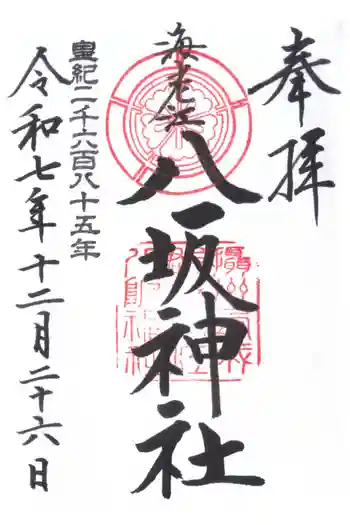 奉拝
海老江
八坂神社
皇紀二千六百八十五年
令和七年十二月二十六日